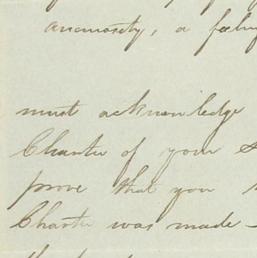 animosity, a feeling
must acknowledge
Charter of your
prove that you
Charter was made